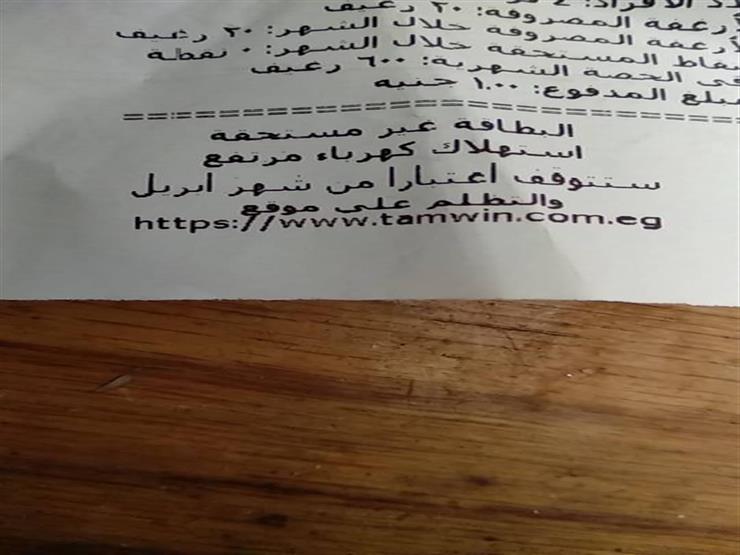 الأفراد: ٤
أرغفة المصروفة: ٢٠ رغيف
أرغفة المصروفة خلال الشهر: ٢٠ رغيف
نقاط المستحقة خلال الشهر: ٠ نقطة
فى الحصة الشهرية: ٦٠٠ رغيف
مبلغ المدفوع: ١.٠٠ جنيه
====================================
البطاقة غير مستحقة
استهلاك كهرباء مرتفع
ستتوقف اعتبارا من شهر ابريل
والتظلم على موقع
https://www.tamwin.com.eg